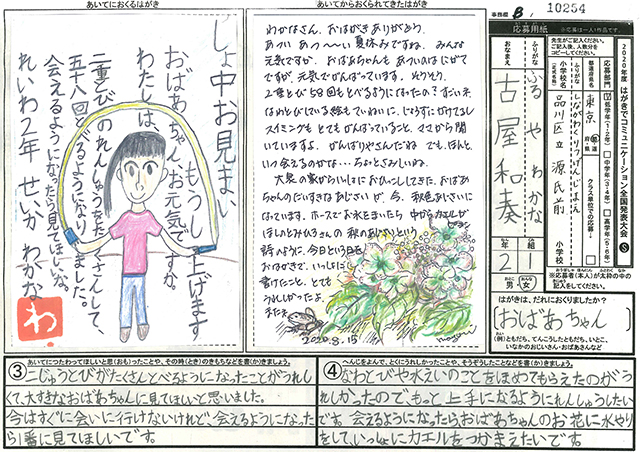 あいてにおくるはがき
しょ中お見まい
もうし上げます
おばあちゃんお元気ですか。
わたしは、
二重とびのれんしゅうをたくさんして、
五十八回とべるようになりました。
会えるようになったら見てほしいな。
れいわ2年 せいか わかな
わ.
あいてからおくられてきたはがき
わかなさん、おはがきありがとう。
あつい あつ〜い 夏休みですね。みんな
元気ですか。おばあちゃんも あついのはにがて
ですが、元気でがんばっています。そうそう、
2重とび58回もとべるようになったの?すごい!
なわとびしている絵もていねいに、じょうずにかけてるし
スイミングも とてもがんばっていること、ママから聞
いていますよ。がんばりやさんだね。でも、ほんと、
いつ会えるのかな…ちょっとさみしいね。
ちゃんのだいすきなあじさいが、今、秋色あじさいに
なっています。ホースでお水をまいたら 中からカエルが
詩のように、今日という日を
おはがきで、いっしょに
書けたこと、とても
うれしかったよ。
またね
2020.8.15
事務欄 B 10254
応募用紙
※応募は一人1作品です。
先生がご記入ください。
ご記入後、人数分を
コピーしてください。
2020年度 はがきでコミュニケーション全国発表大会 S
応募部門 低学年(1・2年) 中学年(3・4年) 高学年(5・6年)
都道府県名 東京 都道府県
クラス単位での応募
ふりがな しながわくりつげんじまえ
小学校名(正式名称) 品川区立 源氏前 小学校
ふりがな ふるや わかな
おなまえ 古屋和奏
年 2 組 1
おとこ おんな
男 女
※応募者(本人)が太枠の中の
記入をしてください。
はがきは、だれにおくりましたか?
おばあちゃん
(例)ともだち、てんこうしたともだち、いとこ、
いなかのおじいさん・おばあさんなど
③ あいてにつたわってほしいと思(おも)ったことや、その時(とき)のきもちなどを書(か)きましょう。
二じゅうとびがたくさんとべるようになったことがうれし
くて、大すきなおばあちゃんに見てほしいと思いました。
今はすぐに会いに行けないけれど、会えるようになった
ら1番に見てほしいです。
④ へんじをよんで、とくにうれしかったことや、そうぞうしたことなどを書(か)きましょう。
なわとびや水えいのことをほめてもらえたのがう
れしかったのでもっと上手になるようにれんしゅうしたい
です。会えるようになったら、おばあちゃんのお花に水やり
をして、いっしょにカエルをつかまえたいです。